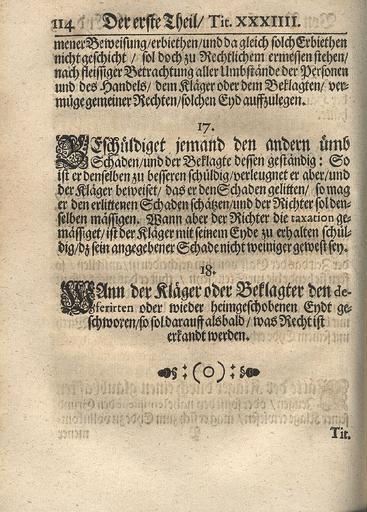 114 Der erste Theil/ Tit. XXXIIII.
mener Beweisung/erbiethen/und da gleich solch Erbiethen
nicht geschicht / sol doch zu Rechtlichem ermessen stehen/
nach fleissiger Betrachtung aller Umbstände der Personen
und des Handels/ dem Kläger oder dem Beklagten/ ver-
müge gemeiner Rechten/solchen Eyd auffzulegen.
17.
BEschüldiget jemand den andern ümb
Schaden/und der Beklagte dessen geständig: So
ist er denselben zu bessern schüldig/verleugnet er aber/und
der Kläger beweiset/ das er den Schaden gelitten/ so mag
er den erlittenen Schaden schätzen/und der Richter sol den-
selben mässigen. Wann aber der Richter die taxation ge-
mässiget/ist der Kläger mit seinem Eyde zu erhalten schül-
dig/dz sein angegebener Schade nicht weniger gewest sey.
18.
WAnn der Kläger oder Beklagter den de-
ferirten oder wieder heimgeschobenen Eydt ge-
schworen/so sol darauff alsbald/ was Recht ist
erkandt werden.
Tit.